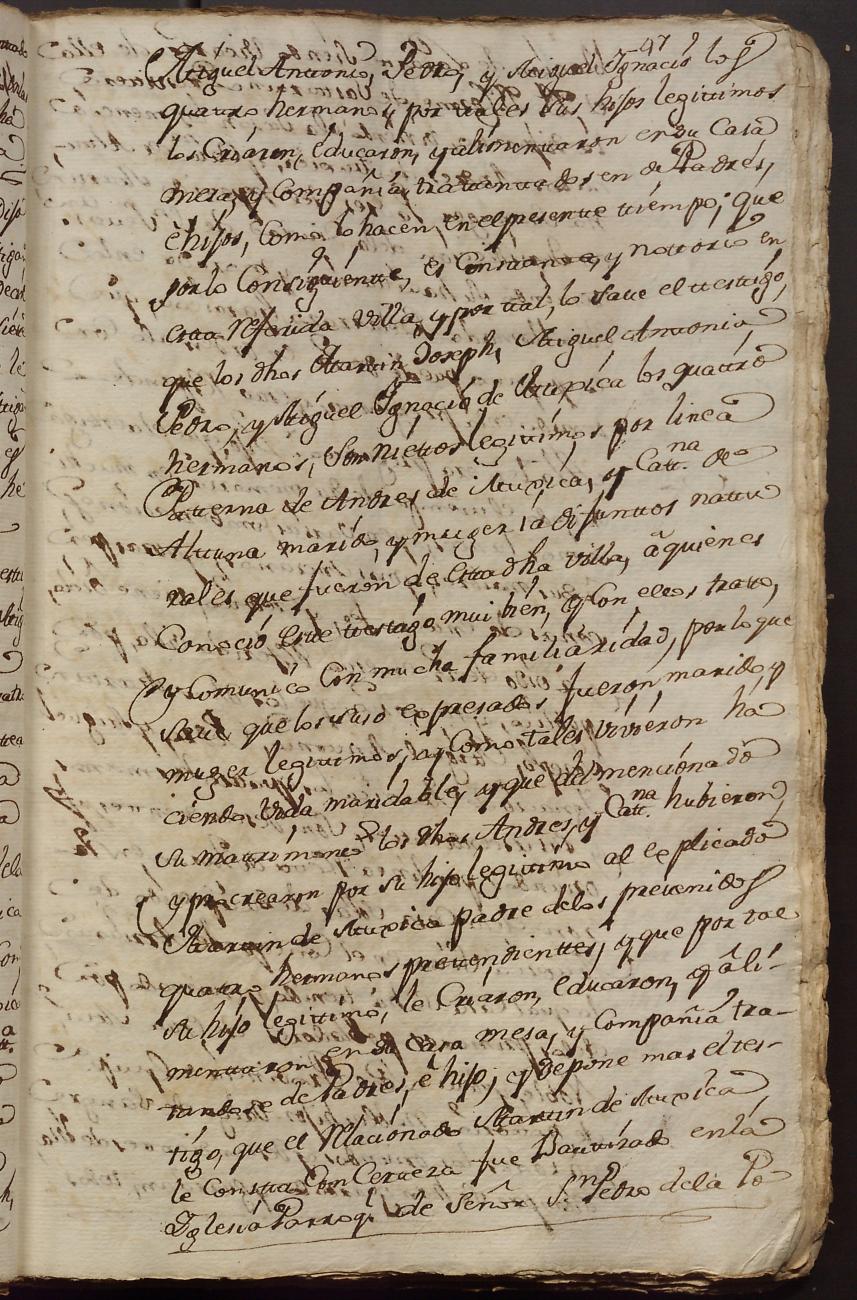 47
Miguel Antonio, Pedro, y Miguel Ignacio los
quatro hermanos y por tales sus hijos legittimos
los Criaron, educaron, y alimentaron en su Casa
mesa, y Compañia, tratandosen de Padres,
è hijos, Como lo hacen, en el presente tiempo; que
por lo Consiguiente, es Constante, y nottorio en
esta referida Villa, y por tal, lo save el testigo,
que los dhos Martin Joseph, Miguel Antonio
Pedro, y Miguel Ignacio de Muxica los quattro
hermanos, Son niettos legitimos por linea
Patterna de Andres de Muxica, y Catt.na de
Altuna marido, y muger ia difuntos natu
rales que fueron de esta dha Villa, â quienes
Conoció este testigo mui bien, y Con ellos trato,
y Comunicò Con mucha familiaridad, por lo que
save que los suso expresados fueron marido, y
muger legitimos, y Como tales vivieron ha
ciendo Vida maridable, y que del mencionado
su matrimonio los dhos Andres, y Catt.na hubieron,
y procrearon por su hijo legitimo al explicado
Martin de Muxica padre de los prevenidos
quatro hermanos pretendientes, y que por tal
su hijo legittimo, le Criaron, educaron, y âli-
mentaron en su Casa mesa, y Compañia tra-
tandose de Padres, è hijo; y depone mas el tes-
tigo, que el Relacionado Martin de Muxica
le Consta Con Certeza fue Bautizado en la
Iglesia Parroq.l de Señor S.n Pedro de la Po-